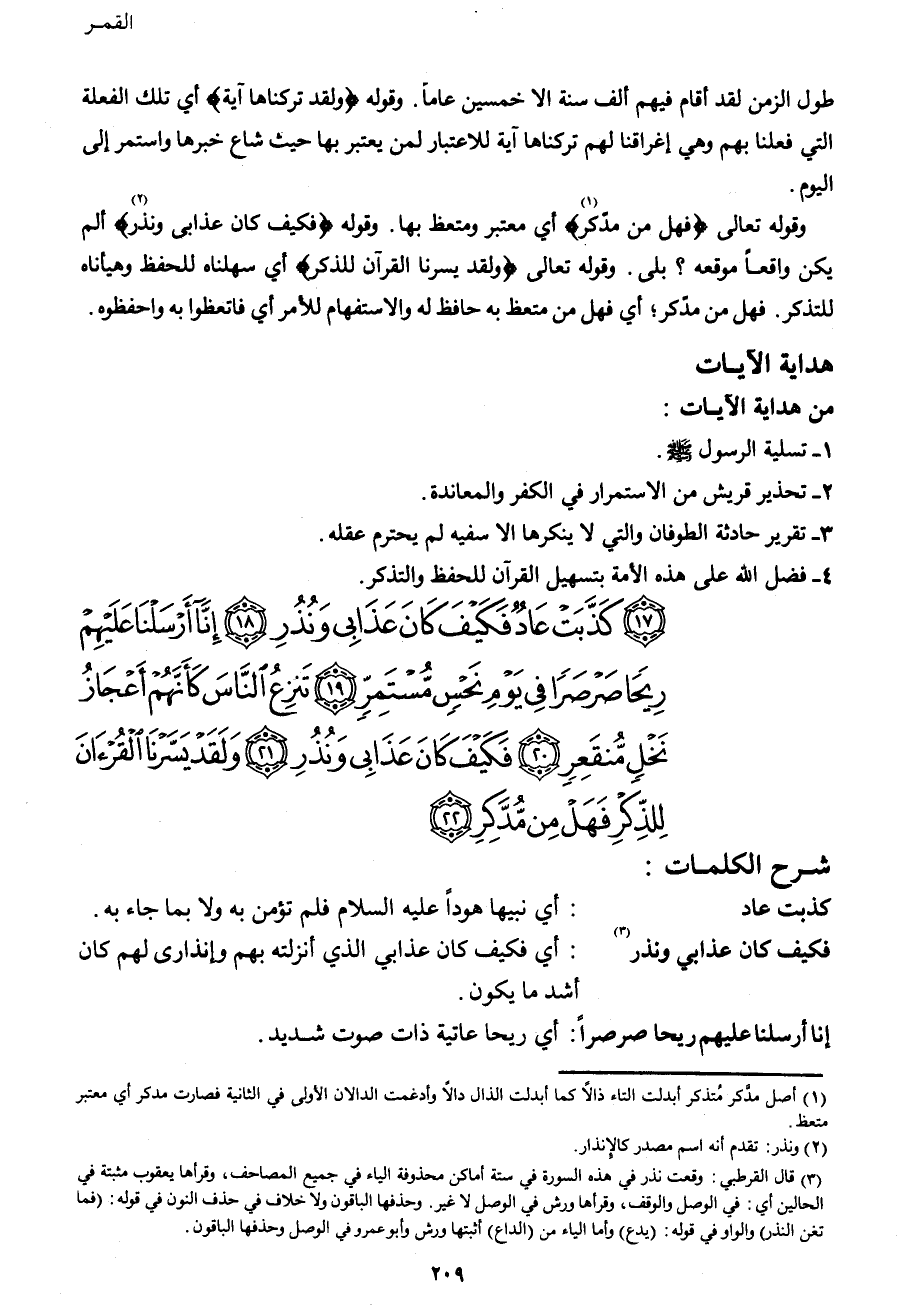 القمـر
طول الزمن لقد أقام فيهم ألف سنة الا خمسين عاماً. وقوله ﴿ولقد تركناها آية﴾ أي تلك الفعلة
التي فعلنا بهم وهي إغراقنا لهم تركناها آية للاعتبار لمن يعتبر بها حيث شاع خبرها واستمر إلى
اليوم.
وقوله تعالى ﴿فهل من مدّكر﴾(١) أي معتبر ومتعظ بها. وقوله ﴿فكيف كان عذابى ونذر﴾(٢) ألم
يكن واقعـاً موقعه ؟ بلى. وقوله تعالى ﴿ولقد يسرنا القرآن للذكر﴾ أي سهلناه للحفظ وهيأناه
للتذكر. فهل من مدّكر؛ أي فهل من متعظ به حافظ له والاستفهام للأمر أي فاتعظوا به واحفظوه.
هداية الآيـات
من هداية الآيـات :
١ـ تسلية الرسول ﷺ.
٢ـ تحذير قريش من الاستمرار في الكفر والمعاندة.
٣ـ تقرير حادثة الطوفان والتي لا ينكرها الا سفيه لم يحترم عقله.
٤ـ فضل الله على هذه الأمة بتسهيل القرآن للحفظ والتذكر.
﴿١٧﴾ كَذَّبَتْ عَادٌ فَكَيْفَ كَانَ عَذَابِى وَنُذُرِ ﴿١٨﴾ إِنَّآ أَرْسَلْنَا عَلَيْهِمْ
رِيحًا صَرْصَرًا فِى يَوْمِ نَحْسٍ مُّسْتَمِرٍّ ﴿١٩﴾ تَنزِعُ ٱلنَّاسَ كَأَنَّهُمْ أَعْجَازُ
نَخْلٍ مُّنقَعِرٍ ﴿٢٠﴾ فَكَيْفَ كَانَ عَذَابِى وَنُذُرِ ﴿٢١﴾ وَلَقَدْ يَسَّرْنَا ٱلْقُرْءَانَ
لِلذِّكْرِ فَهَلْ مِن مُّدَّكِرٍ ﴿٢٢﴾
شـرح الكلمـات :
كذبت عاد : أي نبيها هوداً عليه السلام فلم تؤمن به ولا بما جاء به.
فكيف كان عذابي ونذر(٣) : أي فكيف كان عذابي الذي أنزلته بهم وإنذارى لهم كان
أشد ما يكون.
إنا أرسلنا عليهم ريحا صرصراً: أي ريحا عاتية ذات صوت شـديد.
(١) أصل مدّكر مُتذكر أبدلت التاء ذالاً كما أبدلت الذال دالاً وأدغمت الدالان الأولى في الثانية فصارت مدكر أي معتبر
متعظ.
(٢) ونذر: تقدم أنه اسم مصدر كالإنذار.
(٣) قال القرطبي : وقعت نذر في هذه السورة في ستة أماكن محذوفة الياء في جميع المصاحف، وقرأها يعقوب مثبتة في
الحالين أي : في الوصل والوقف، وقرأها ورش في الوصل لا غير. وحذفها الباقون ولا خلاف في حذف النون في قوله : (فما
تغن النذر) والواو في قوله : (يدع) وأما الياء من (الداع) أثبتها ورش وأبو عمرو في الوصل وحذفها الباقون.
٢٠٩